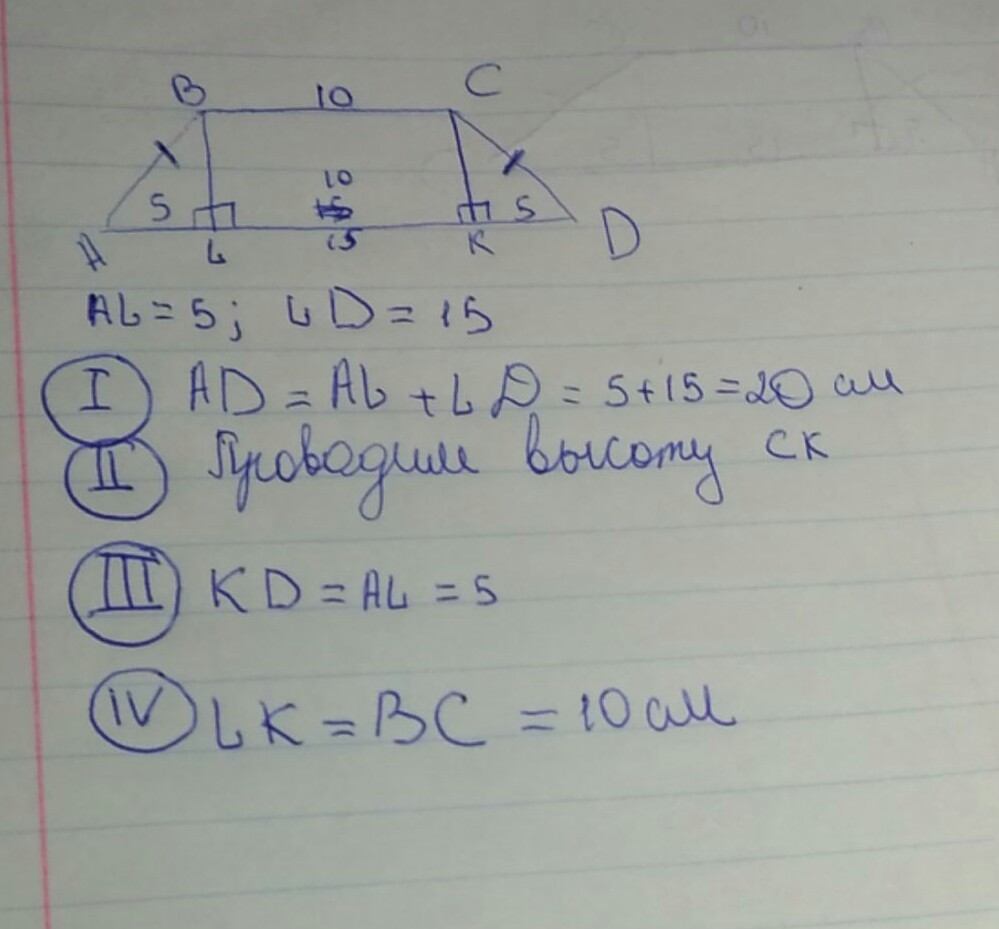 B 10 C
10
5 5
A L 15 K D
AL = 5; LD = 15
I AD = AL + LD = 5+15=20 см
II Проводим высоту СК
III KD = AL = 5
IV LK = BC = 10 см